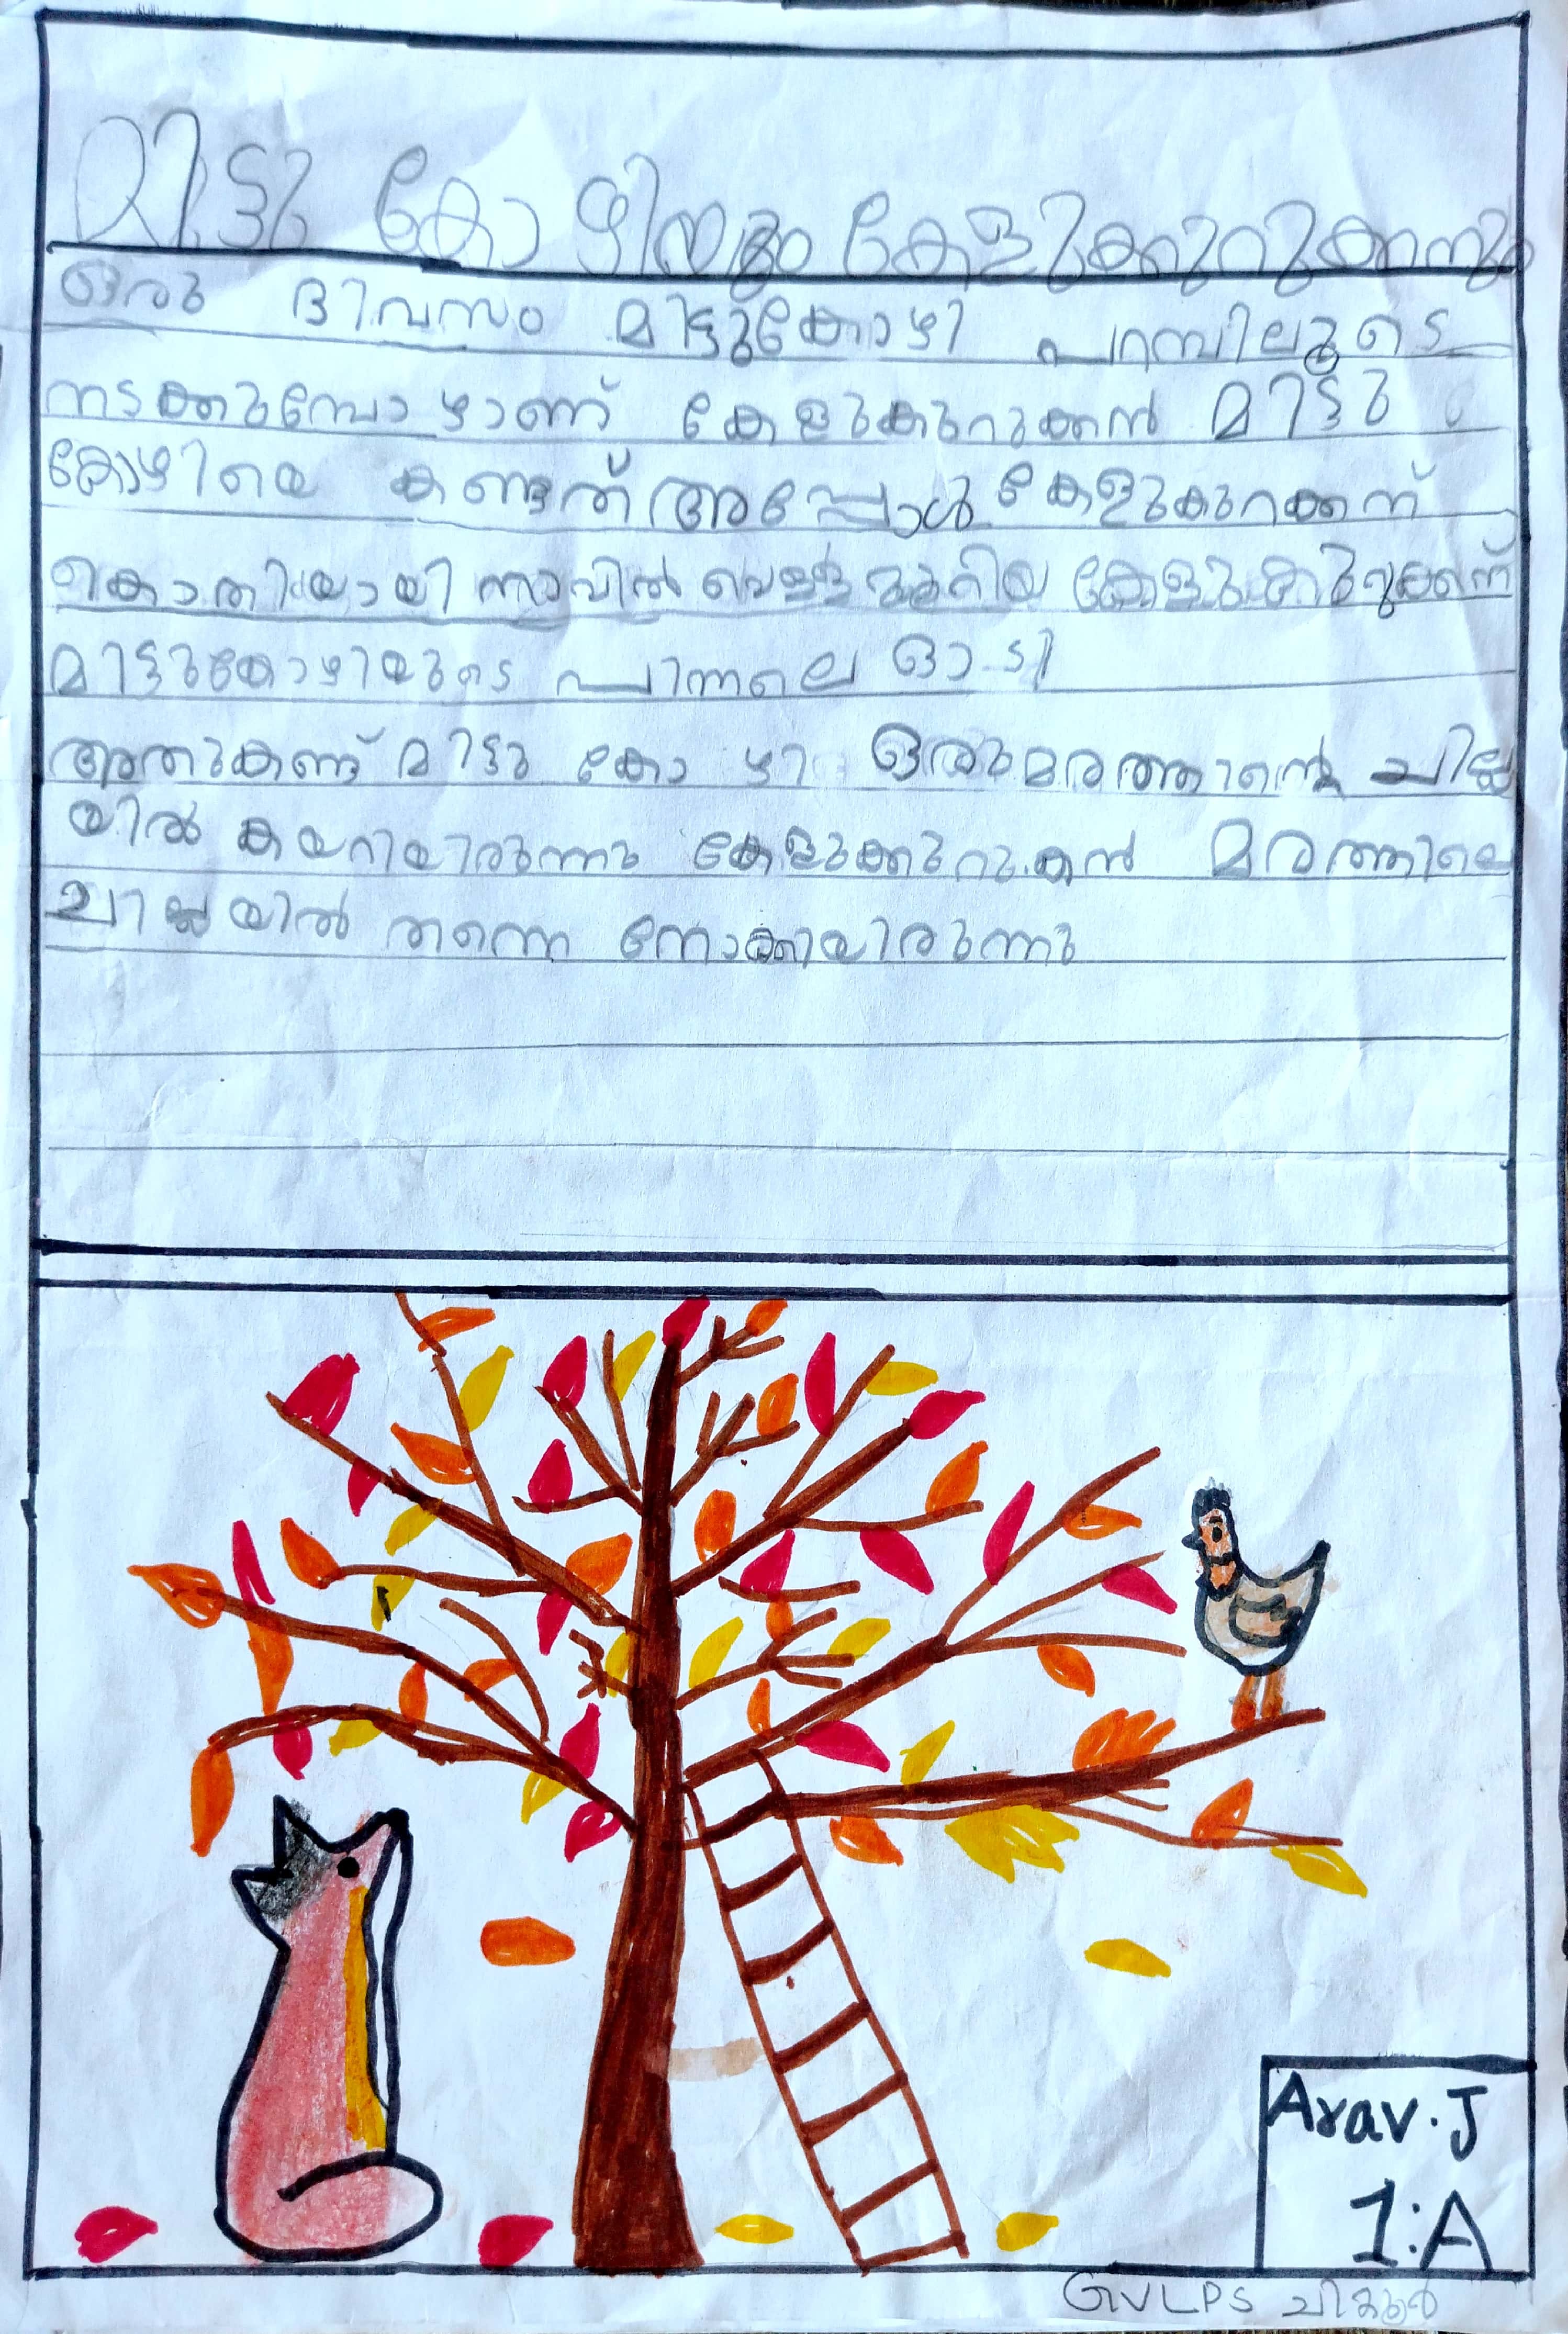 മിട്ടു കോഴിയും കേളുക്കുറുക്കനും
ഒരു ദിവസം മിട്ടുകോഴി പറമ്പിലൂടെ
നടക്കുമ്പോഴാണ് കേളുകുറുക്കൻ മിട്ടു
കോഴിയെ കണ്ടത് അപ്പോൾ കേളുകുറക്കന്
കൊതിയായി നാവിൽ വെള്ളമൂറിയ കേളുകുറുക്കന്
മിട്ടുകോഴിയുടെ പിന്നലെ ഓടി
അതുകണ്ട് മിട്ടു കോഴി ഒരുമരത്തിന്റെ ചില്ല
യിൽ കയറിയിരുന്നു കേളുക്കുറുകൻ മരത്തിലെ
ചില്ലയിൽ തന്നെ നോക്കിയിരുന്നു
Arav.J
1:A
GVLPS ചിറ്റൂർ